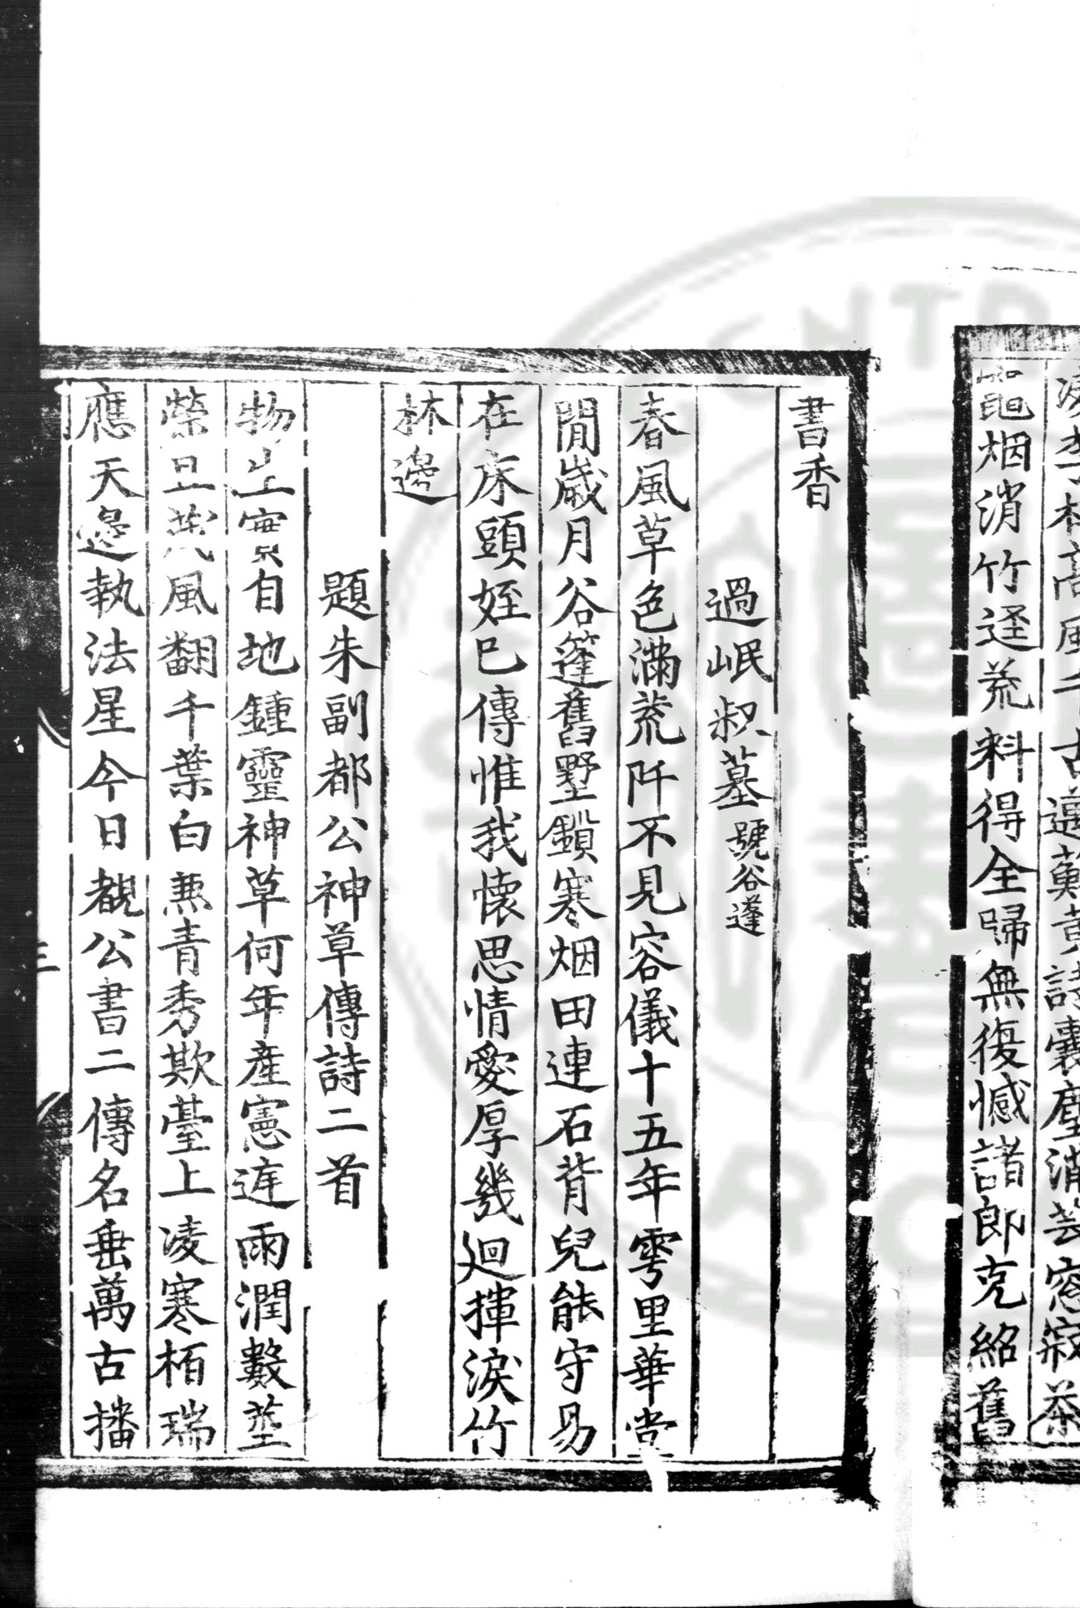 李杜高風千古邁蘇黄詩囊塵滿芸窓寂茶
竈烟消竹逕荒料得全歸無復憾諸郎克紹舊
書香
過岷叔墓號谷篷
春風草色滿荒阡不見容儀十五年雩里華堂
閒歲月谷篷舊墅鎖寒烟田連石背兒能守易
在床頭姪巳傳惟我懷思情愛厚幾迴揮淚竹
林邊
題朱副都公神草傳詩二首
物生實自地鍾靈神草何年產憲𨓍雨潤數莖
榮且茂風翻千葉白兼青秀欺臺上凌寒栢瑞
應天邊執法星今日觀公書二傳名垂萬古播